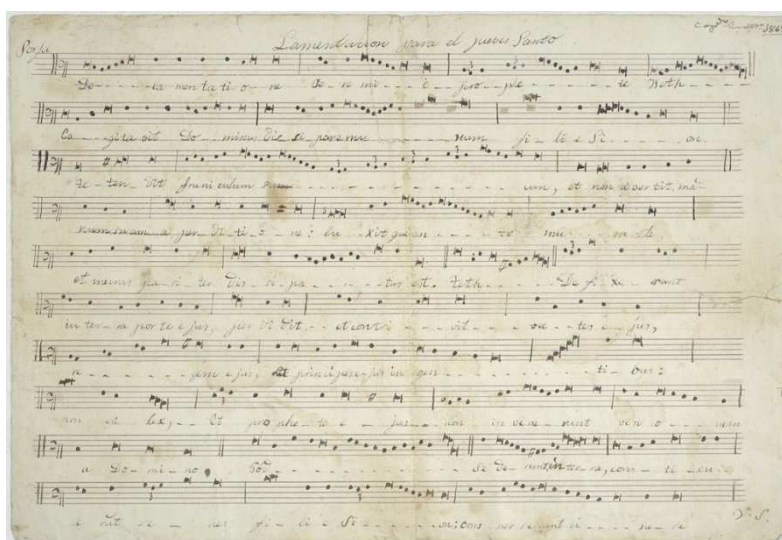 Lamentacion para el jueves Santo
De - - la men ta ti - o - ne Je - re mi - - - e pro - phe - - - - te Heth - - -
Co - - gi ta vit Do - minus di - - - - - rum fi - li e Si - - - - on.
te - ten - dit funi culum suum - - - - - - - - - - - um, et non a ver tit, ma -
num suam a per di - ti - o - ne: lu - - xit que an - - - - te mu - - - ra - le
et murus pa - ri - ter dis - si - pa - - - - tus est. teth - - - De fi xe sunt
in ter - ra por te e jus, per di dit, - - et contri - - - vit - - - ve - tes - - jus,
re - - - - gem e jus, et principes e jus in gen - - - - - - - - ti - bus:
non est lex, - - et pro phe - te e - - jus non in vene - runt visi o - - nem
a Do - mi - no Jod - - - - - - - - - - Se de runt in ter ra, con - ti - cu -
e runt se - - nes fi - li e Si - - - - - - on: cons per serunt ci - - - ne - re
V. S.